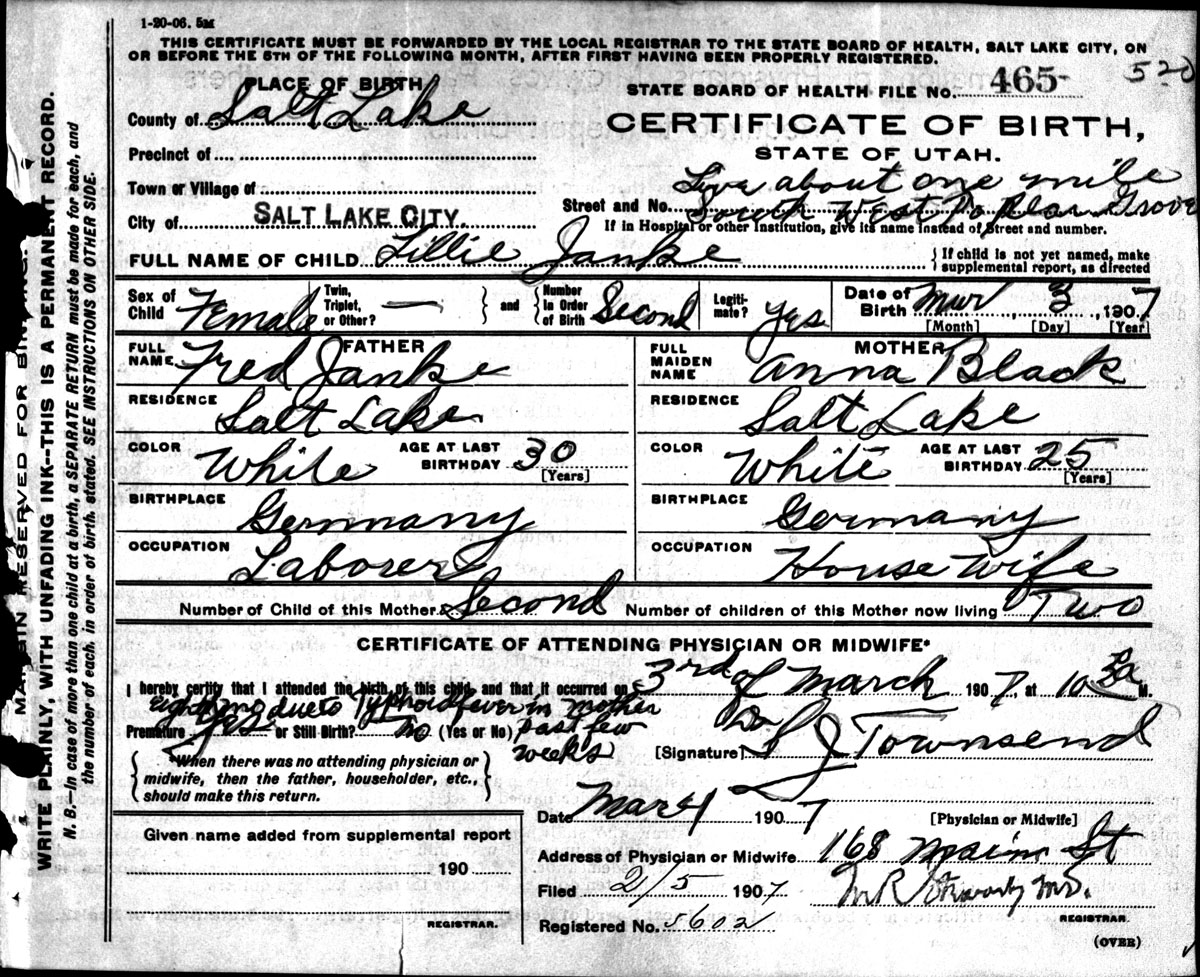 1-20-06. 5M
THIS CERTIFICATE MUST BE FORWARDED BY THE LOCAL REGISTRAR TO THE STATE BOARD OF HEALTH, SALT LAKE CITY, ON
OR BEFORE THE 5TH OF THE FOLLOWING MONTH, AFTER FIRST HAVING BEEN PROPERLY REGISTERED.
520
PLACE OF BIRTH
STATE BOARD OF HEALTH FILE NO. 465
County of Salt Lake
CERTIFICATE OF BIRTH,
Precinct of
STATE OF UTAH.
Town or Village of
Live about one mile
Street and No. South West Poplar Grove
City of SALT LAKE CITY.
If in Hospital or other Institution, give its name instead of Street and number.
FULL NAME OF CHILD Lillie Janke
If child is not yet named, make
supplemental report, as directed
Sex of Child Female
Twin, Triplet, or Other? —
and Number In Order of Birth Second
Legiti-mate? Yes
Date of Birth Mar 3, 1907
[Month] [Day] [Year]
FATHER
FULL NAME Fred Janke
MOTHER
FULL MAIDEN NAME Anna Black
RESIDENCE Salt Lake
RESIDENCE Salt Lake
COLOR White AGE AT LAST BIRTHDAY 30 [Years]
COLOR White AGE AT LAST BIRTHDAY 25 [Years]
BIRTHPLACE Germany
BIRTHPLACE Germany
OCCUPATION Laborer
OCCUPATION House Wife
Number of Child of this Mother Second Number of children of this Mother now living Two
CERTIFICATE OF ATTENDING PHYSICIAN OR MIDWIFE*
I hereby certify that I attended the birth of this child, and that it occurred on 3rd of March 1907, at 10 M.
eight mo due to Typhoid fever in mother
Premature Yes or Still Birth? No (Yes or No) past few
weeks
[Signature] S J Townsend
*When there was no attending physician or
midwife, then the father, householder, etc.,
should make this return.
Date Mar 4 1907
[Physician or Midwife]
Given name added from supplemental report
190
REGISTRAR.
Address of Physician or Midwife 168 Main St
Filed 2/5 1907
M.D.
REGISTRAR.
Registered No. 5602
(OVER)
MARGIN RESERVED FOR BINDING.
WRITE PLAINLY, WITH UNFADING INK--THIS IS A PERMANENT RECORD.
N. B.—In case of more than one child at a birth, a SEPARATE RETURN must be made for each, and
the number of each, in order of birth, stated. SEE INSTRUCTIONS ON OTHER SIDE.